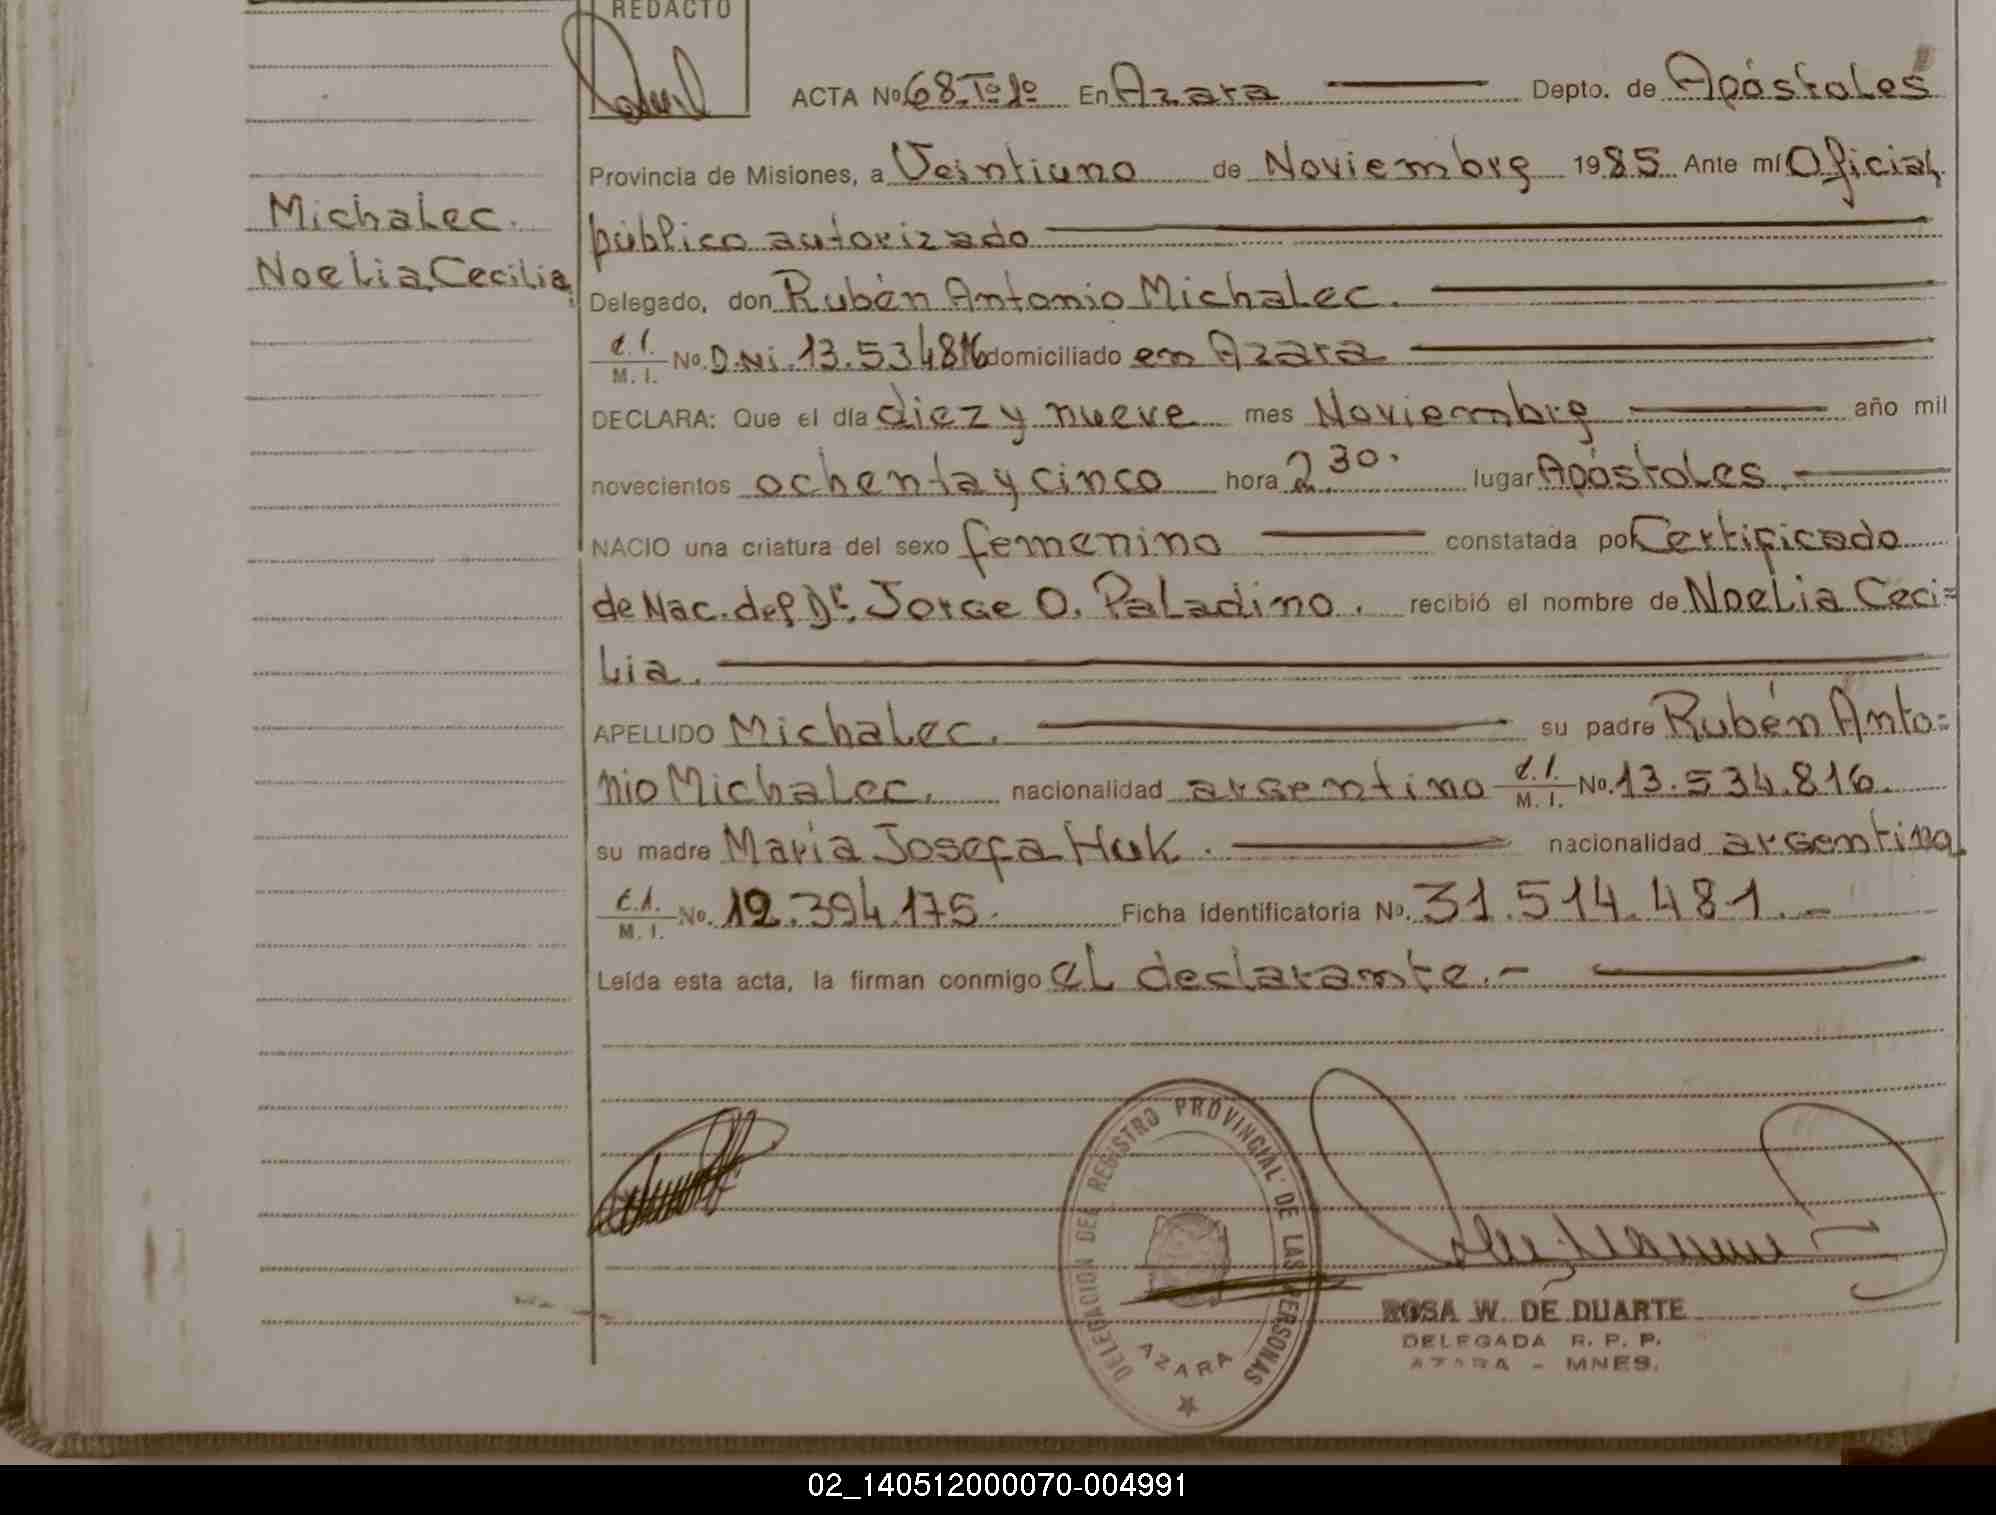 REDACTO
ACTA Nº 68.Tº1º En Azara Depto. de Apóstoles
Provincia de Misiones, a Veintiuno de Noviembre 1985 Ante mí Oficial
público autorizado
Michalec.
Noelia Cecilia
Delegado, don Rubén Antonio Michalec.
C.I. M.I. Nº. D.Ni. 13.534816 domiciliado en Azara
DECLARA: Que el día diez y nueve mes Noviembre año mil
novecientos ochenta y cinco hora 2.30. lugar Apóstoles.-
NACIO una criatura del sexo femenino constatada por Certificado
de Nac. del Dr. Jorge O. Paladino. recibió el nombre de Noelia Ceci=
lia.
APELLIDO Michalec. su padre Rubén Anto=
nio Michalec. nacionalidad argentino C.I. M.I. Nº. 13.534.816.
su madre María Josefa Huk. nacionalidad argentina
C.I. M.I. Nº. 12.394.175. Ficha identificatoria Nº. 31.514.481.-
Leída esta acta, la firman conmigo el declarante.-
DELEGACION DEL REGISTRO PROVINCIAL DE LAS PERSONAS
AZARA
ROSA W. DE DUARTE
DELEGADA R. P. P.
AZARA - MNES.
02_140512000070-004991